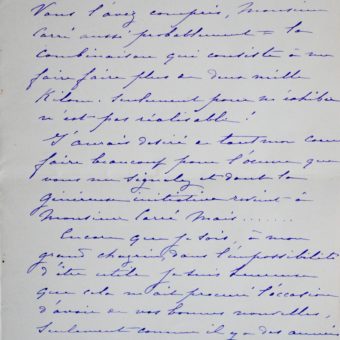 Vous l'avez compris, Monsieur
Carré aussi probablement = la
combinaison qui consiste à me
faire faire plus de deux mille
Kilom. seulement pour m'exhiber
n'est pas réalisable !
J'aurais désiré de tout mon cœur
faire beaucoup pour l'œuvre que
vous me signalez et dont la
généreuse initiative revient à
Monsieur Carré Mais.......
Encore que je sois, à mon
grand chagrin, dans l'impossibilité
d'être utile je suis heureuse
que cela m'ait procuré l'occasion
d'avoir de vos bonnes nouvelles,
Seulement comme il y a des années